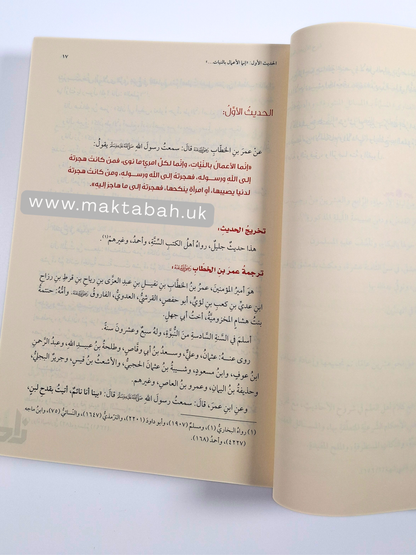 الحديث الأول: «إنما الأعمال بالنيات ...»
١٧
الحديثُ الأوّلُ:
عنْ عمرَ بنِ الخطَّابِ قالَ: سمعتُ رسولَ اللهِ يقولُ:
«إنَّما الأعمالُ بالنيَّاتِ، وإنَّما لكلِّ امرئٍ ما نوى، فمَن كانتْ هجرتُهُ
إلى اللهِ ورسولِهِ، فهجرتُهُ إلى اللهِ ورسولِهِ، ومَن كانتْ هجرتُهُ
لدنيا يصيبُها، أو امرأةٍ ينكحُها، فهجرتُهُ إلى ما هاجرَ إليهِ».
www.maktabah.uk
تخريجُ الحديثِ:
هذا حديثٌ جليلٌ، رواهُ أهلُ الكتبِ السِّتَّةِ، وأحمدُ، وغيرهمْ(١).
ترجمةُ عمرَ بنِ الخطابِ
هوَ أميرُ المؤمنينَ، عمرُ بنُ الخطَّابِ بنِ نفيلِ بنِ عبدِ العزَّى بنِ رياحِ بنِ قرطِ بنِ رزاحِ
ابنِ عديِّ بنِ كعبِ بنِ لؤيٍّ، أبو حفصٍ، القرشيُّ، العدويُّ، الفاروقُ، وأمُّهُ: حنتمةُ
بنتُ هشامٍ المخزوميَّةُ، أختُ أبي جهلٍ.
أسلمَ في السَّنةِ السَّادسةِ منَ النُّبوَّةِ، ولهُ سبعٌ وعشرونَ سنةً.
روى عنهُ: عثمانُ، وعليٌّ، وسعدُ بنُ أبي وقَّاصٍ، وطلحةُ بنُ عبيدِ اللهِ، وعبدُ الرَّحمنِ
ابنُ عوفٍ، وابنُ مسعودٍ، وشيبةُ بنُ عثمانَ الحجبيُّ، والأشعثُ بنُ قيسٍ، وجريرٌ البجليُّ،
وحذيفةُ بنُ اليمانِ، وعمرو بنُ العاصِ، وغيرهمْ.
وعنِ ابنِ عمرَ، قالَ: سمعتُ رسولَ اللهِ قالَ: «بينا أنا نائمٌ، أُتيتُ بقدحِ لبنٍ،
(١) رواهُ البخاريُّ (١)، ومسلمٌ (١٩٠٧)، وأبو داودَ (٢٢٠١)، والتِّرمذيُّ (١٦٤٧)، والنَّسائيُّ (٧٥)، وابنُ ماجه
(٤٢٢٧)، وأحمدُ (١٦٨).